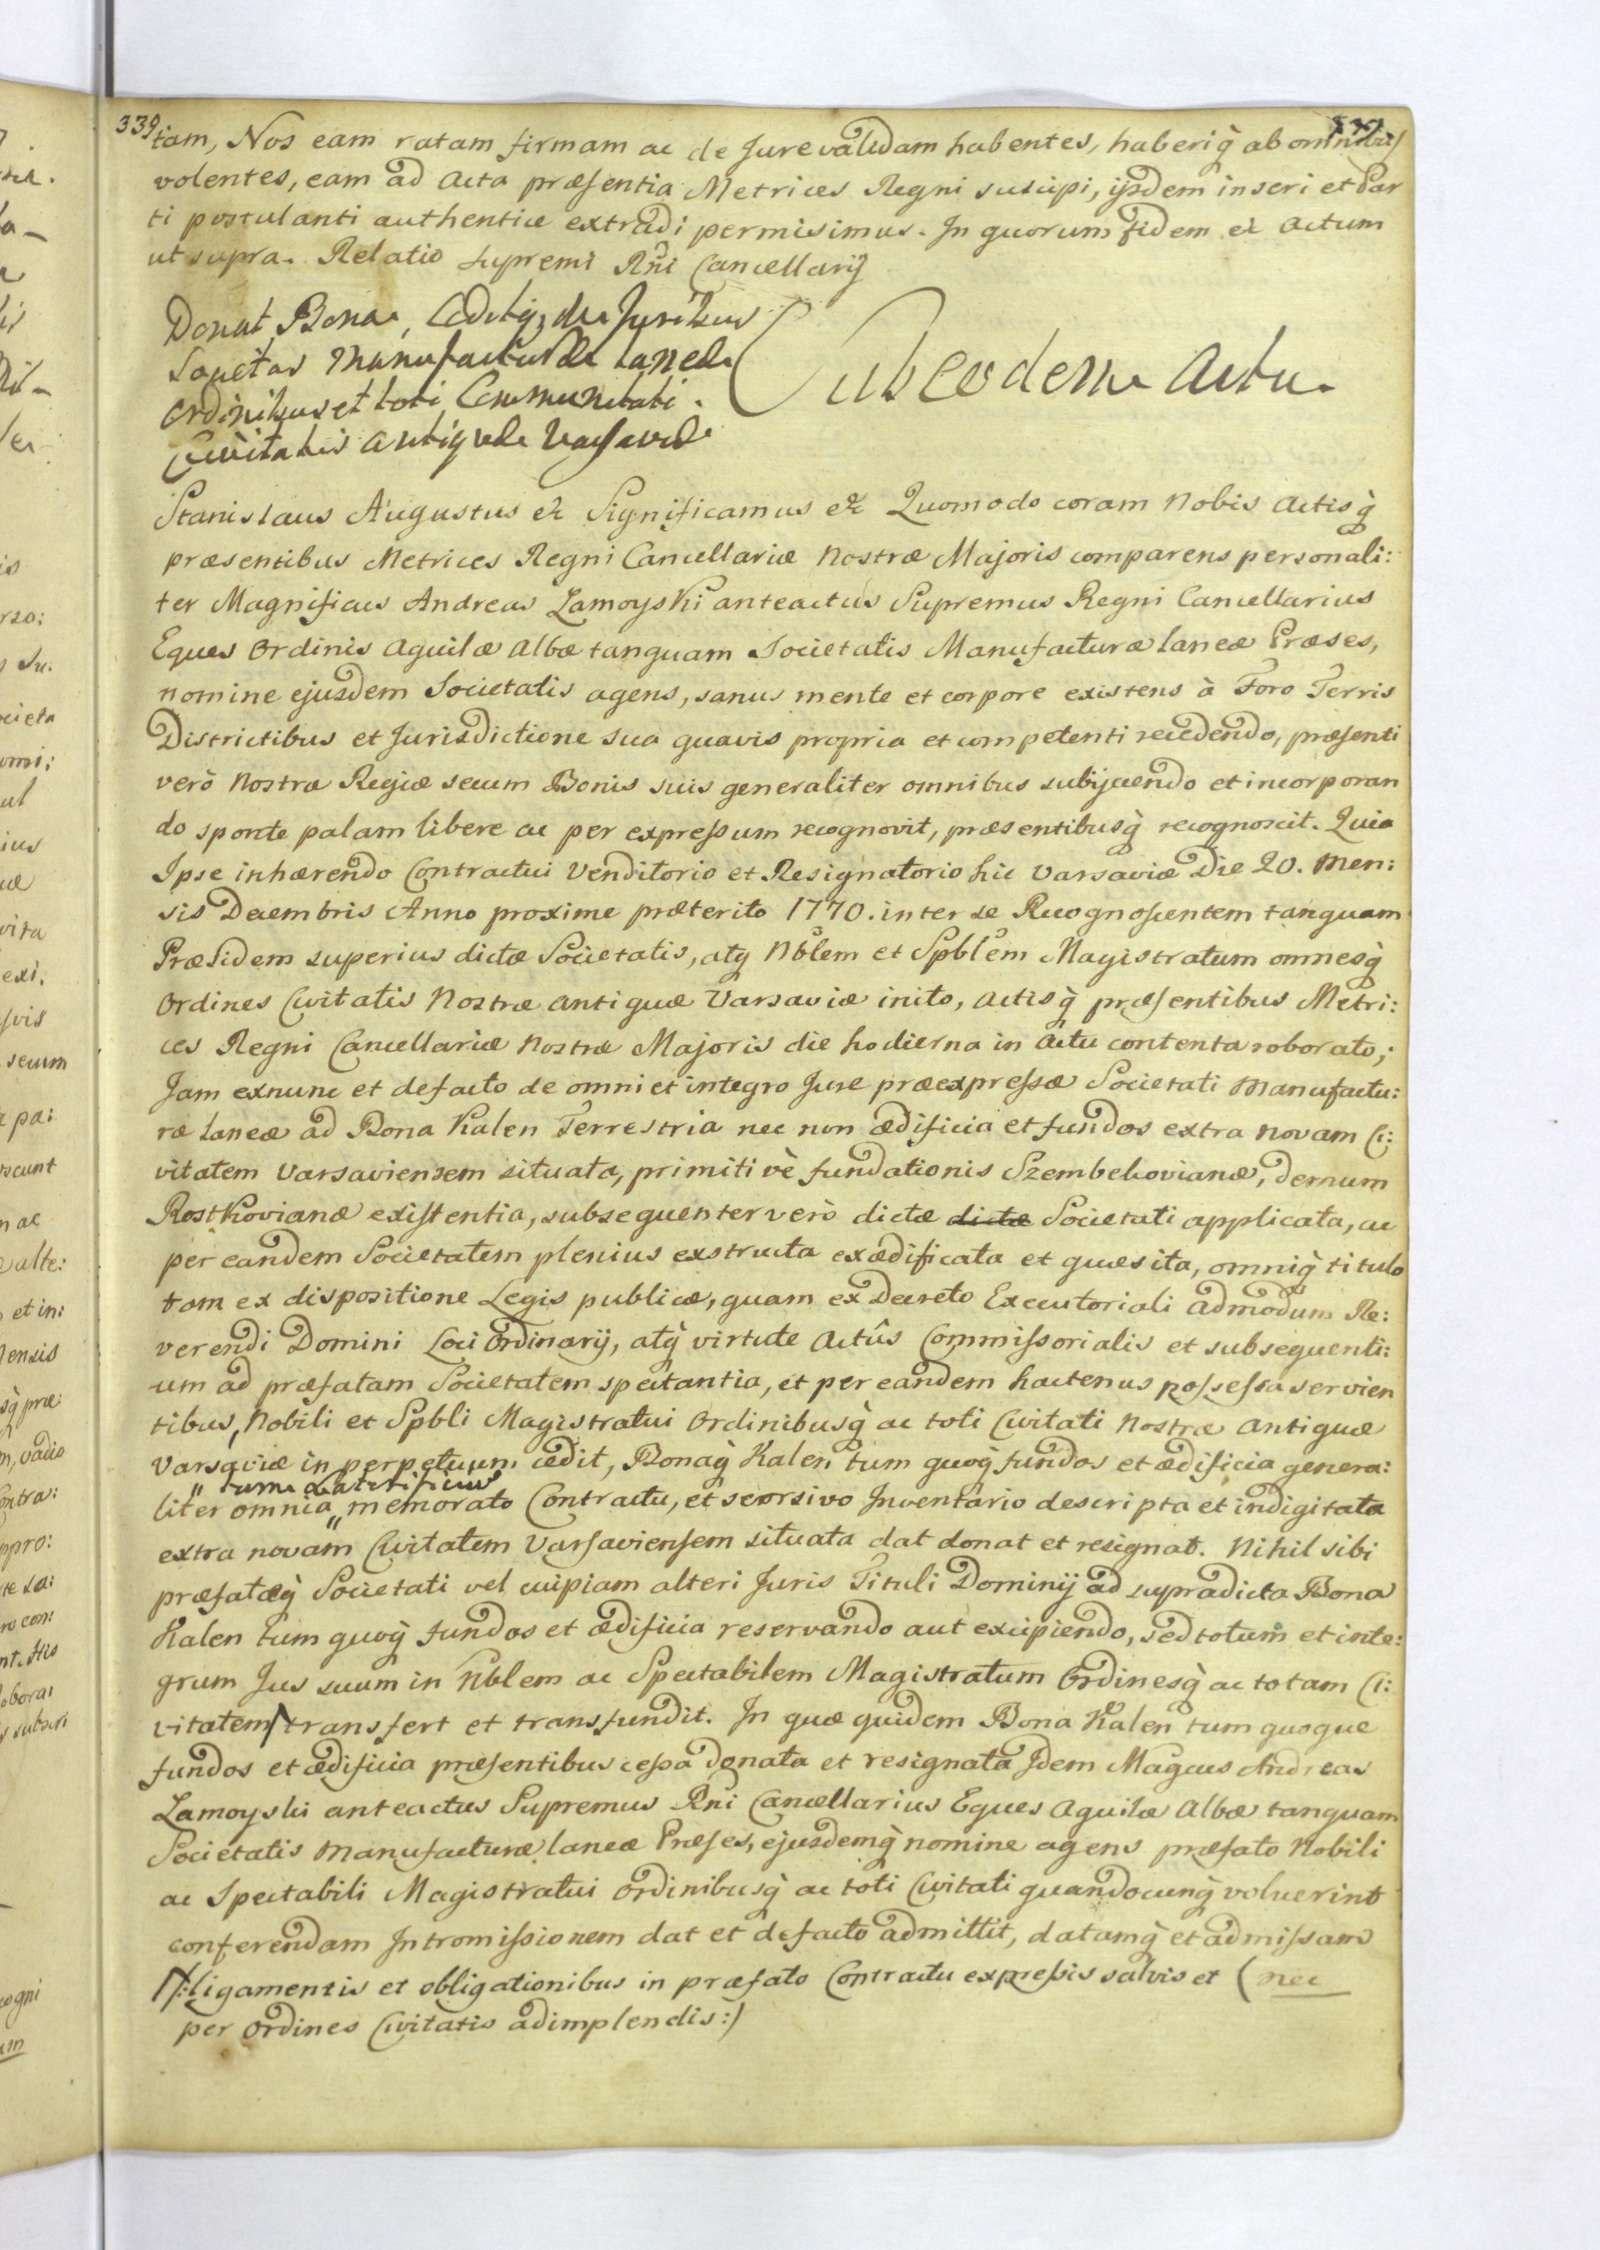 339
tam, Nos eam ratam firmam ac de Jure validam habentes, haberiq̀ ab omnibus
volentes, eam ad Acta præsentia Metrices Regni suscipi, ijsdem inseri et Par
ti postulanti authentice extradi permisimus. In quorum fidem &c Actum
ut supra. Relatio supremi Rñi Cancellarij
Donat Bona, Ceditq; de Juribus
Societas Manufacturæ Laneæ
Ordinibus et toti Communitati
Civitatis Antiquæ Varsaviæ
Sub eodem Actu.
Stanislaus Augustus &c Significamus &c Quomodo coram Nobis Actisq̀
præsentibus Metrices Regni Cancellariæ Nostræ Majoris comparens personali:
ter Magnificus Andreas Zamoyski anteactus Supremus Regni Cancellarius
Eques Ordinis Aquilæ Albæ tanquam Societatis Manufacturæ laneæ Præses,
nomine ejusdem Societatis agens, sanus mente et corpore existens à Foro Terris
Districtibus et Jurisdictione sua quavis propria et competenti recedendo, præsenti
verò Nostræ Regiæ secum Bonis suis generaliter omnibus subijciendo et incorporan
do sponte palam libere ac per expressum recognovit, præsentibusq̀ recognoscit. Quia
Ipse inhærendo Contractui Venditorio et Resignatorio hic Varsaviæ Die 20. Men:
sis Decembris Anno proxime præterito 1770. inter se Recognoscentem tanquam
Præsidem superius dictæ Societatis, atq Nblem et Spblem Magistratum omnesq̀
Ordines Civitatis Nostræ Antiquæ Varsaviæ inito, Actisq̀ præsentibus Metri:
ces Regni Cancellariæ Nostræ Majoris die hodierna in Actu contenta roborato;
Jam exnunc et defacto de omni et integro Jure præexpressæ Societati Manufactu:
ræ laneæ ad Bona Kalen Terrestria nec non ædificia et fundos extra Novam Ci:
vitatem Varsaviensem situata, primitivè fundationis Szembekovianæ, demum
Rostkovianæ existentia, subsequenter verò dictæ dictæ Societati applicata, ac
per eandem Societatem plenius exstructa exædificata et quæsita, omniq̀ titulo
tam ex dispositione Legis publicæ, quam ex Decreto Executoriali Admodum Re:
verendi Domini Loci Ordinarij, atq̀ virtute Actûs Commissorialis et subsequenti:
um ad præfatam Societatem spectantia, et per eandem hactenus possessa servien
tibus, Nobili et Spbli Magistratui Ordinibusq̀ ac toti Civitati Nostræ Antiquæ
Varsaviæ in perpetuum cedit, Bonaq̀ Kalen tum quoq̀ fundos et ædificia genera:
" tum Lateritium
liter omnia " memorato Contractu, et seorsivo Inventario descripta et indigitata
extra novam Civitatem Varsaviensem situata dat donat et resignat. Nihil sibi
præfatæq̀ Societati vel cuipiam alteri Juris Tituli Dominij ad supradicta Bona
Kalen tum quoq̀ fundos et ædificia reservando aut excipiendo, sed totum et inte:
grum Jus suum in Nblem ac Spectabilem Magistratum Ordinesq̀ ac totam Ci:
vitatem transfert et transfundit. In quæ quidem Bona Kalen tum quoque
fundos et ædificia præsentibus cessa donata et resignata Idem Magcus Andreas
Zamoyski anteactus Supremus Rñi Cancellarius Eques Aquilæ Albæ tanquam
Societatis Manufacturæ laneæ Præses, ejusdemq̀ nomine agens præfato Nobili
ac Spectabili Magistratui Ordinibusq̀ ac toti Civitati quandocunq̀ voluerint
conferendam Intromissionem dat et defacto admittit, datamq̀ et admissam
/:ligamentis et obligationibus in præfato Contractu expressis salvis et ( nec
per Ordines Civitatis adimplendis:/